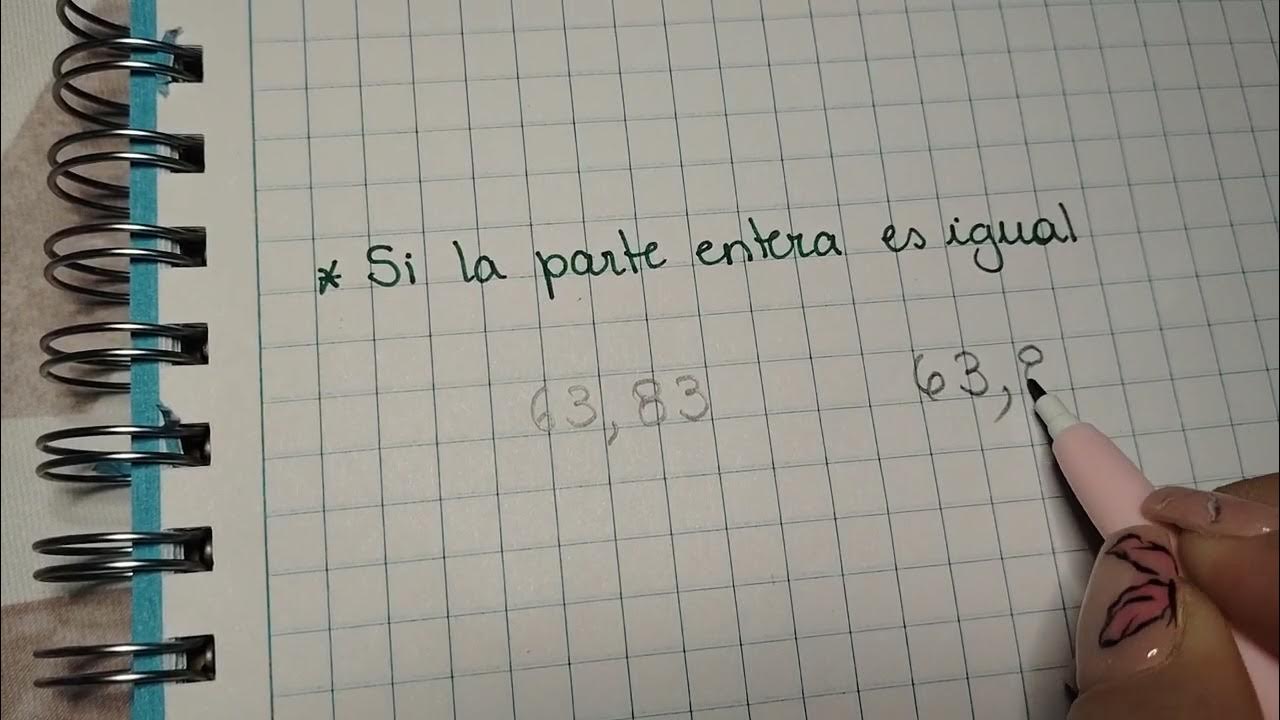 * Si la parte entera es igual
63,83 63,8